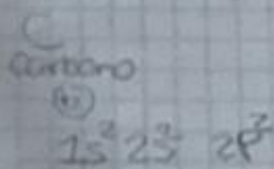 C
carbono
1s² 2s² 2p²